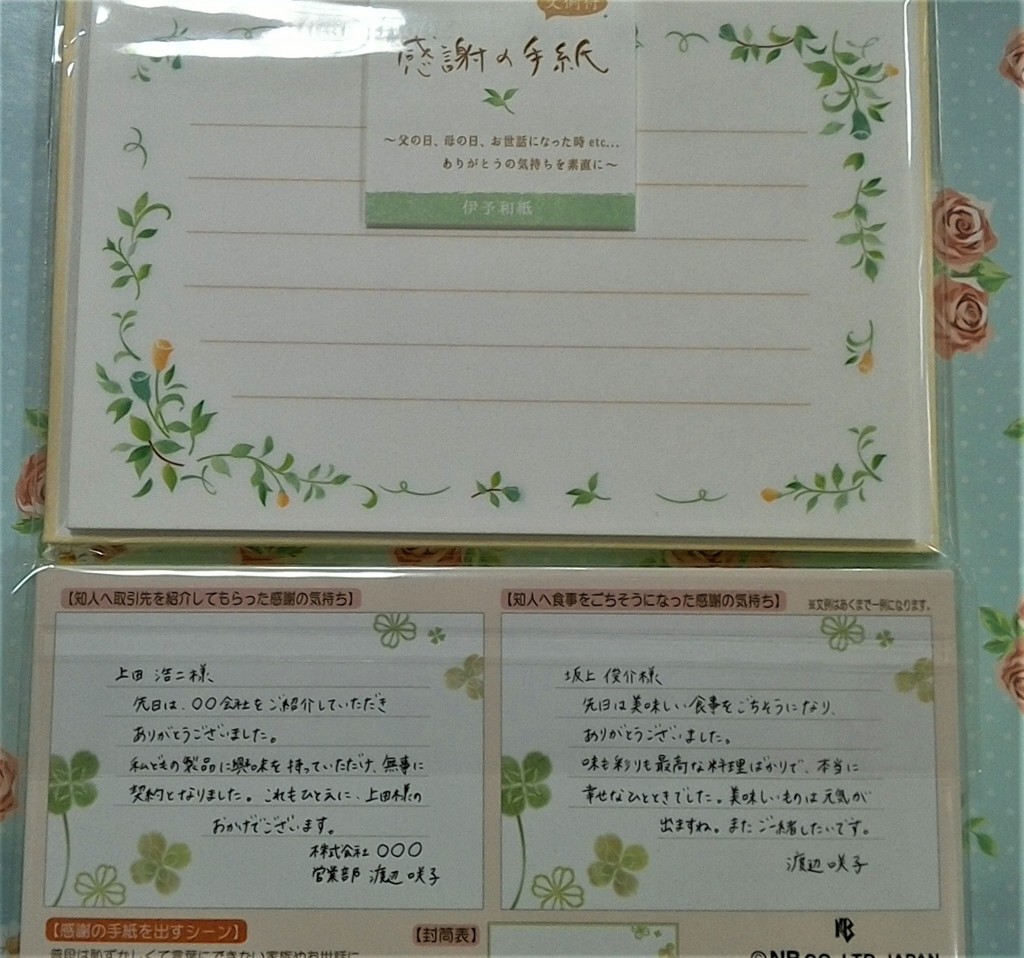 文例付
感謝の手紙
～父の日、母の日、お世話になった時 etc...
ありがとうの気持ちを素直に～
伊予和紙
【知人へ取引先を紹介してもらった感謝の気持ち】
上田 浩二様
先日は、〇〇会社をご紹介していただき
ありがとうございました。
私どもの製品に興味を持っていただけ、無事に
契約となりました。これもひとえに、上田様の
おかげでございます。
株式会社 〇〇〇
営業部 渡辺 咲子
【知人へ食事をごちそうになった感謝の気持ち】
※文例はあくまで一例になります。
坂上 俊介様
先日は美味しい食事をごちそうになり、
ありがとうございました。
味も彩りも最高な料理ばかりで、本当に
幸せなひとときでした。美味しいものは元気が
出ますね。またご一緒したいです。
渡辺 咲子
【感謝の手紙を出すシーン】
普段は恥ずかしくて言葉にできない家族やお世話に
【封筒表】
NB
©NB CO.,LTD. JAPAN